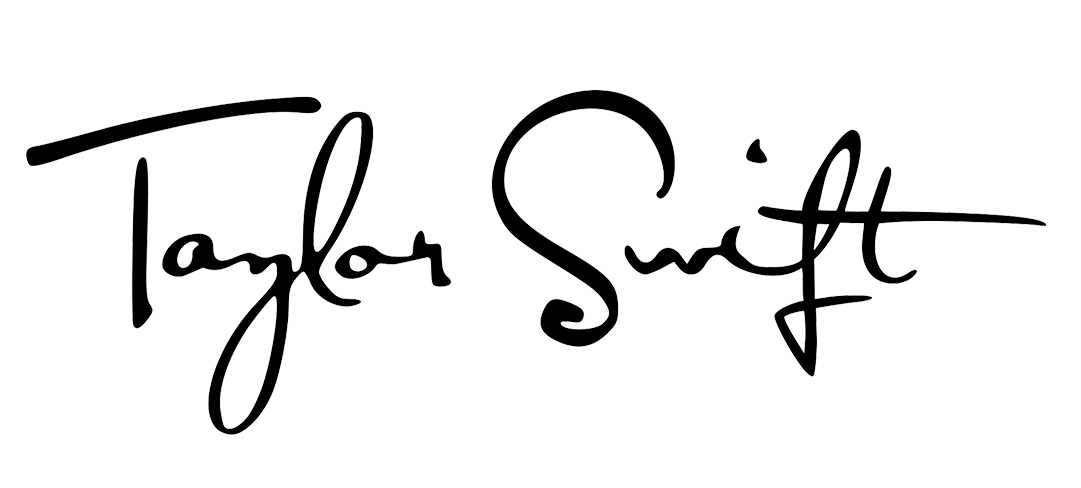 Taylor Swift